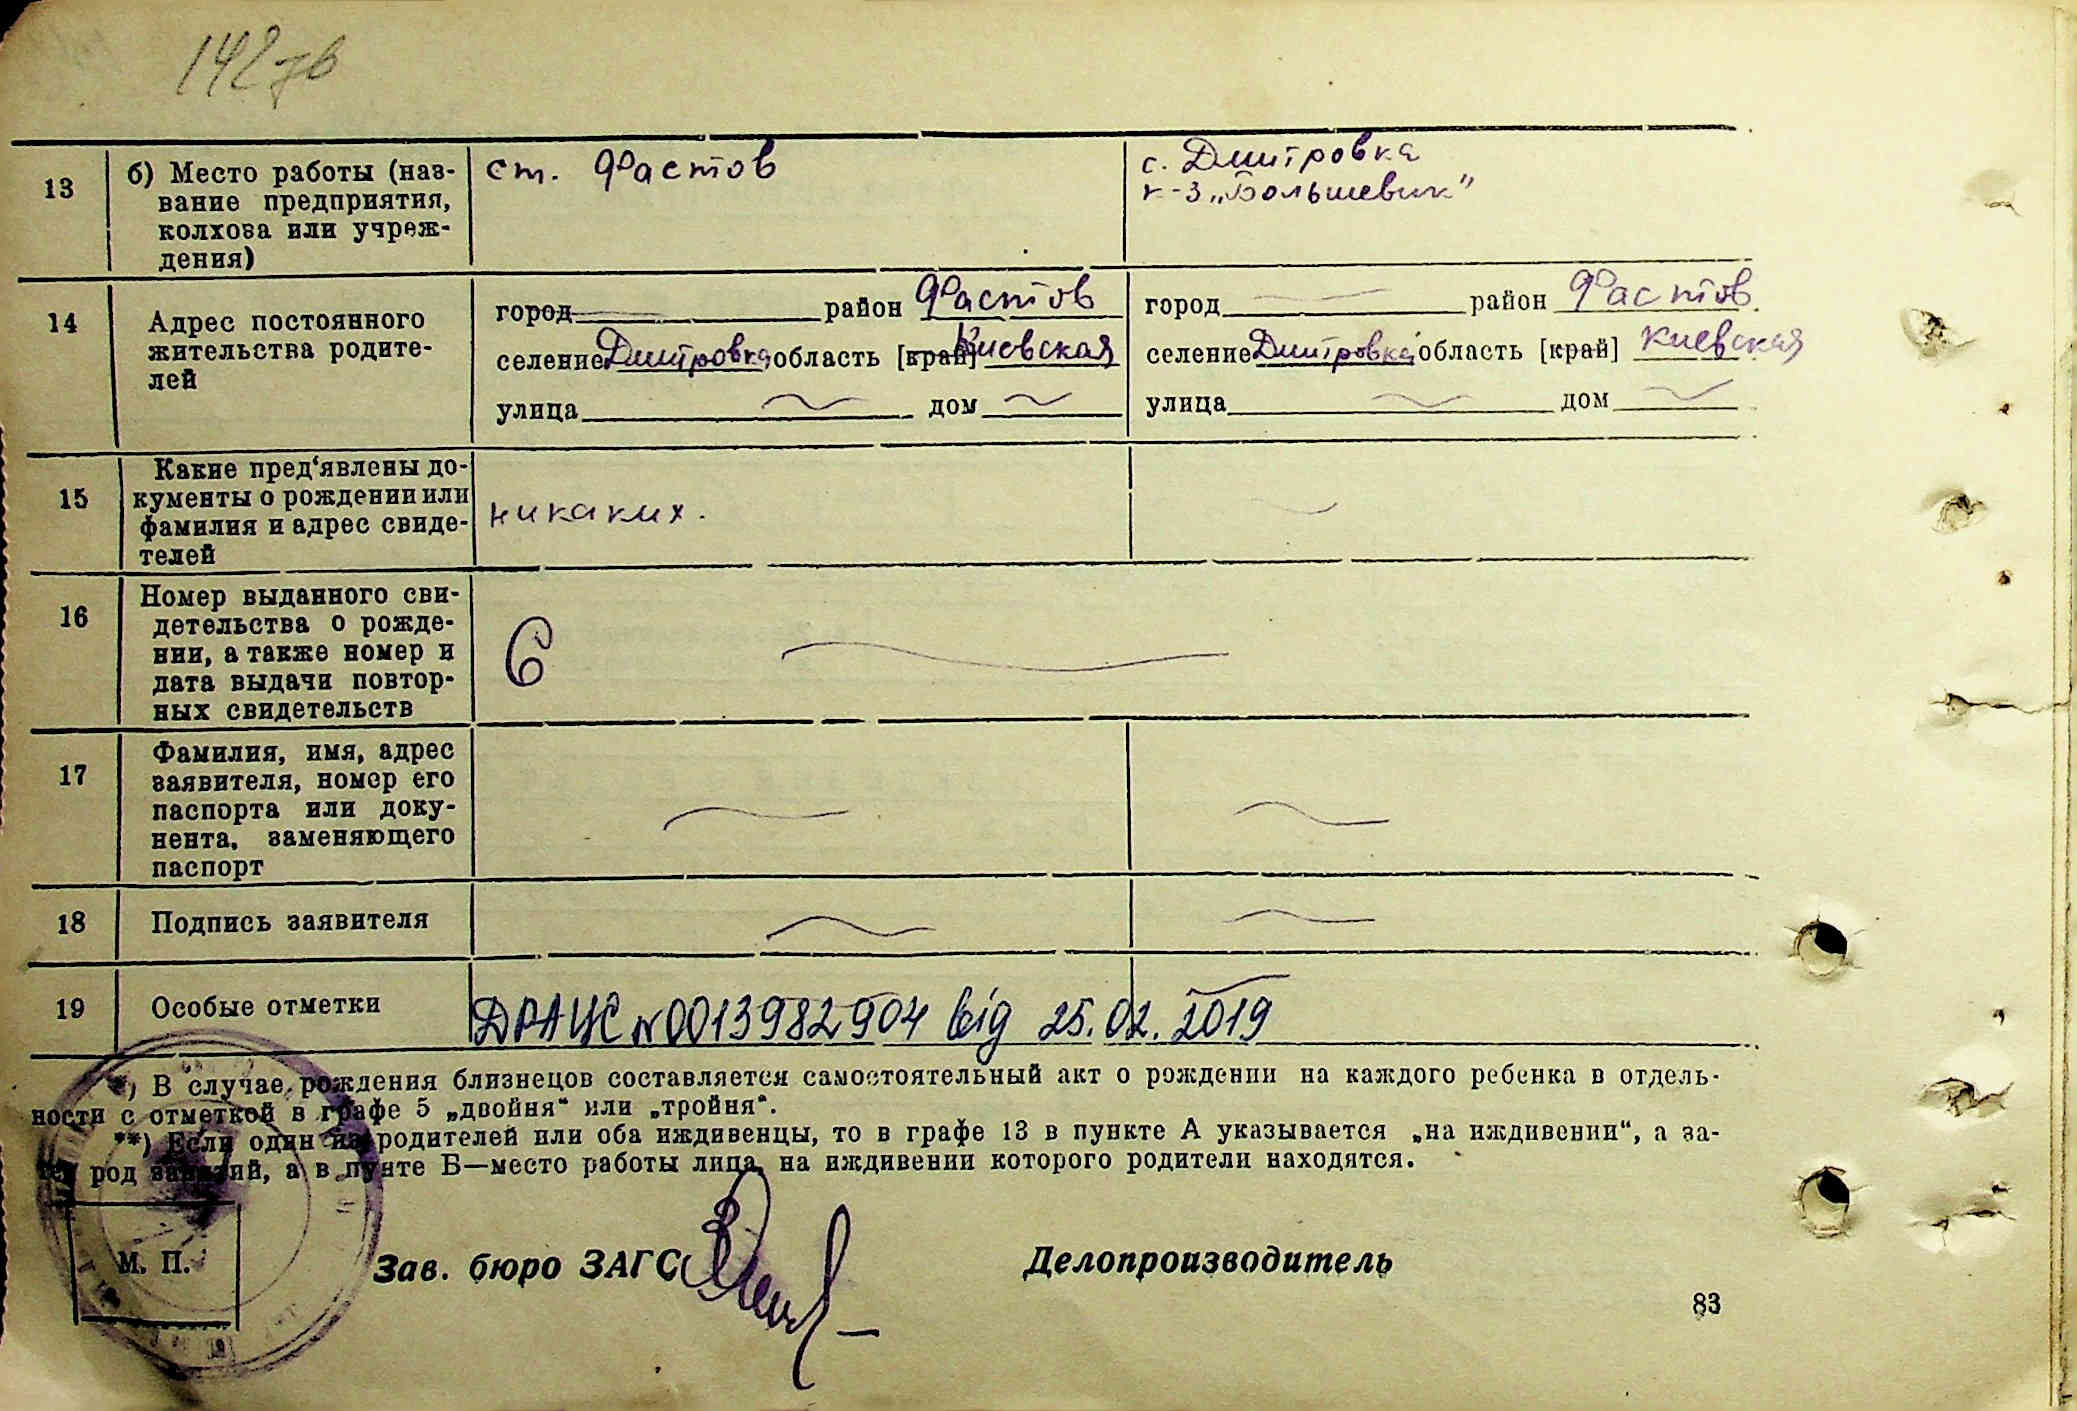 142 зв
13
б) Место работы (наз-
вание предприятия,
колхоза или учреж-
дения)
ст. Фастов
с. Дмитровка
к-з „Большевик"
14
Адрес постоянного
жительства родите-
лей
город район Фастов
селение Дмитровка область [край] Киевская
улица дом
город район Фастов
селение Дмитровка область [край] Киевская
улица дом
15
Какие пред‘явлены до-
кументы о рождении или
фамилия и адрес свиде-
телей
никаких.
16
Номер выданного сви-
детельства о рожде-
нии, а также номер и
дата выдачи повтор-
ных свидетельств
6
17
Фамилия, имя, адрес
заявителя, номер его
паспорта или доку-
нента, заменяющего
паспорт
18
Подпись заявителя
19
Особые отметки
ДРАЦС № 0013982904 від 25.02.2019
*) В случае рождения близнецов составляется самостоятельный акт о рождении на каждого ребенка в отдель-
ности с отметкой в графе 5 „двойня“ или „тройня“.
**) Если один из родителей или оба иждивенцы, то в графе 13 в пункте А указывается „на иждивении“, а за-
тем род занятий, а в пункте Б—место работы лица, на иждивении которого родители находятся.
М. П.
Зав. бюро ЗАГС
Делопроизводитель
83